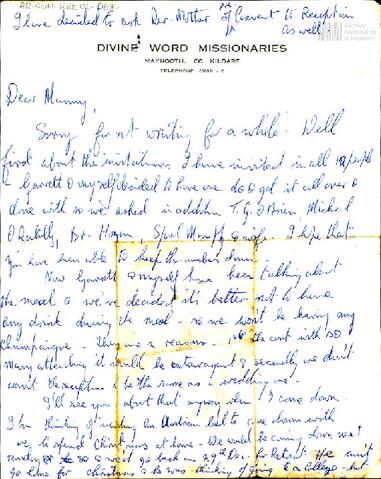 I have decided to ask Rev. Mother of Convent to Reception
as well
Archivo
Nacional de
la Memoria
DIVINE WORD MISSIONARIES
MAYNOOTH, CO KILDARE
TELEPHONE
Dear Mummy,
Sorry for not writing for a while. Well
first about the invitations I have invited in all people
Garrett & myself decided to have one do & get it all over &
done with so we asked in addition T.G. O'Brien, Michael
O'Reilly, Br. Hogan, & wife. I hope that
you have been able to keep the numbers down.
Now Garrett & myself have been talking about
the meal & we've decided it's better not to have
any drink during the meal - so we won't be having any
champaigne. reasons the cost with so
many attending it would be extravagant & secondly we don't
want the reception to be the same as a wedding one.
I'll see you about that anyway when I come down.
I'm thinking of inviting an Austrian lad to come down with
me to spend Christmas at home. We would be coming down next
& go back on 29th Dec. for Retreat. He can't
go home for Christmas & he was thinking of going to a College - but